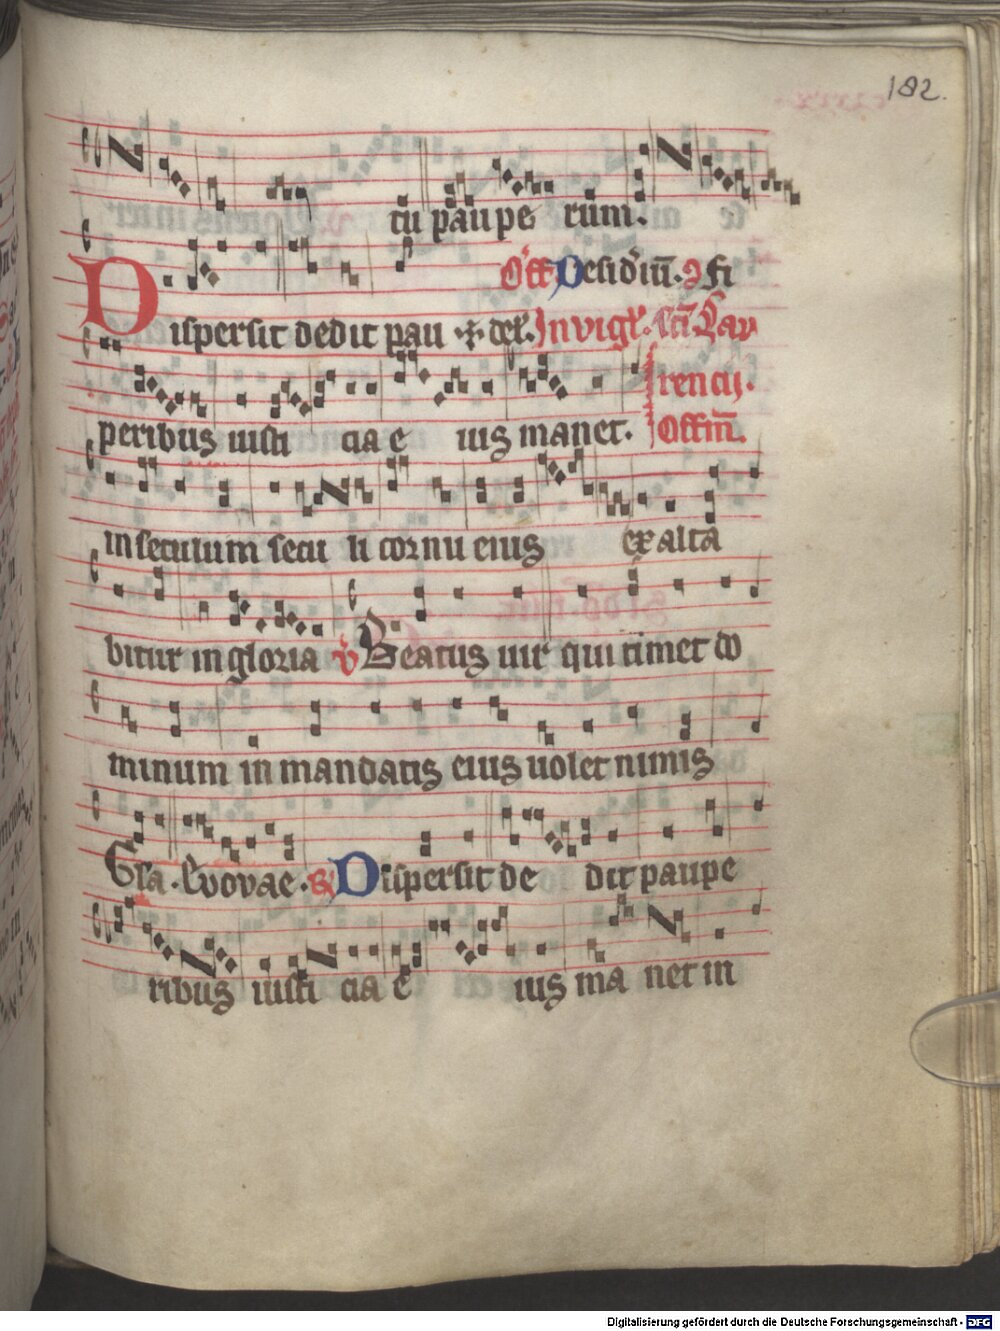 182.
tu paupe rum.
Off Desid'iū. ꝯ Fi
Dispersit dedit pau ✠ der. In vigl'. sc̄i Lau
peribus iusti cia e ius manet. rencij.
Offm̄.
in seculum secu li cornu eius exalta
bitur in gloria V̄ Beatus uir qui timet do
minum in mandatis eius uolet nimis
Gl'a. Evovae. Dispersit de dit paupe
ribus iusti cia e ius ma net in
Digitalisierung gefördert durch die Deutsche Forschungsgemeinschaft - DFG